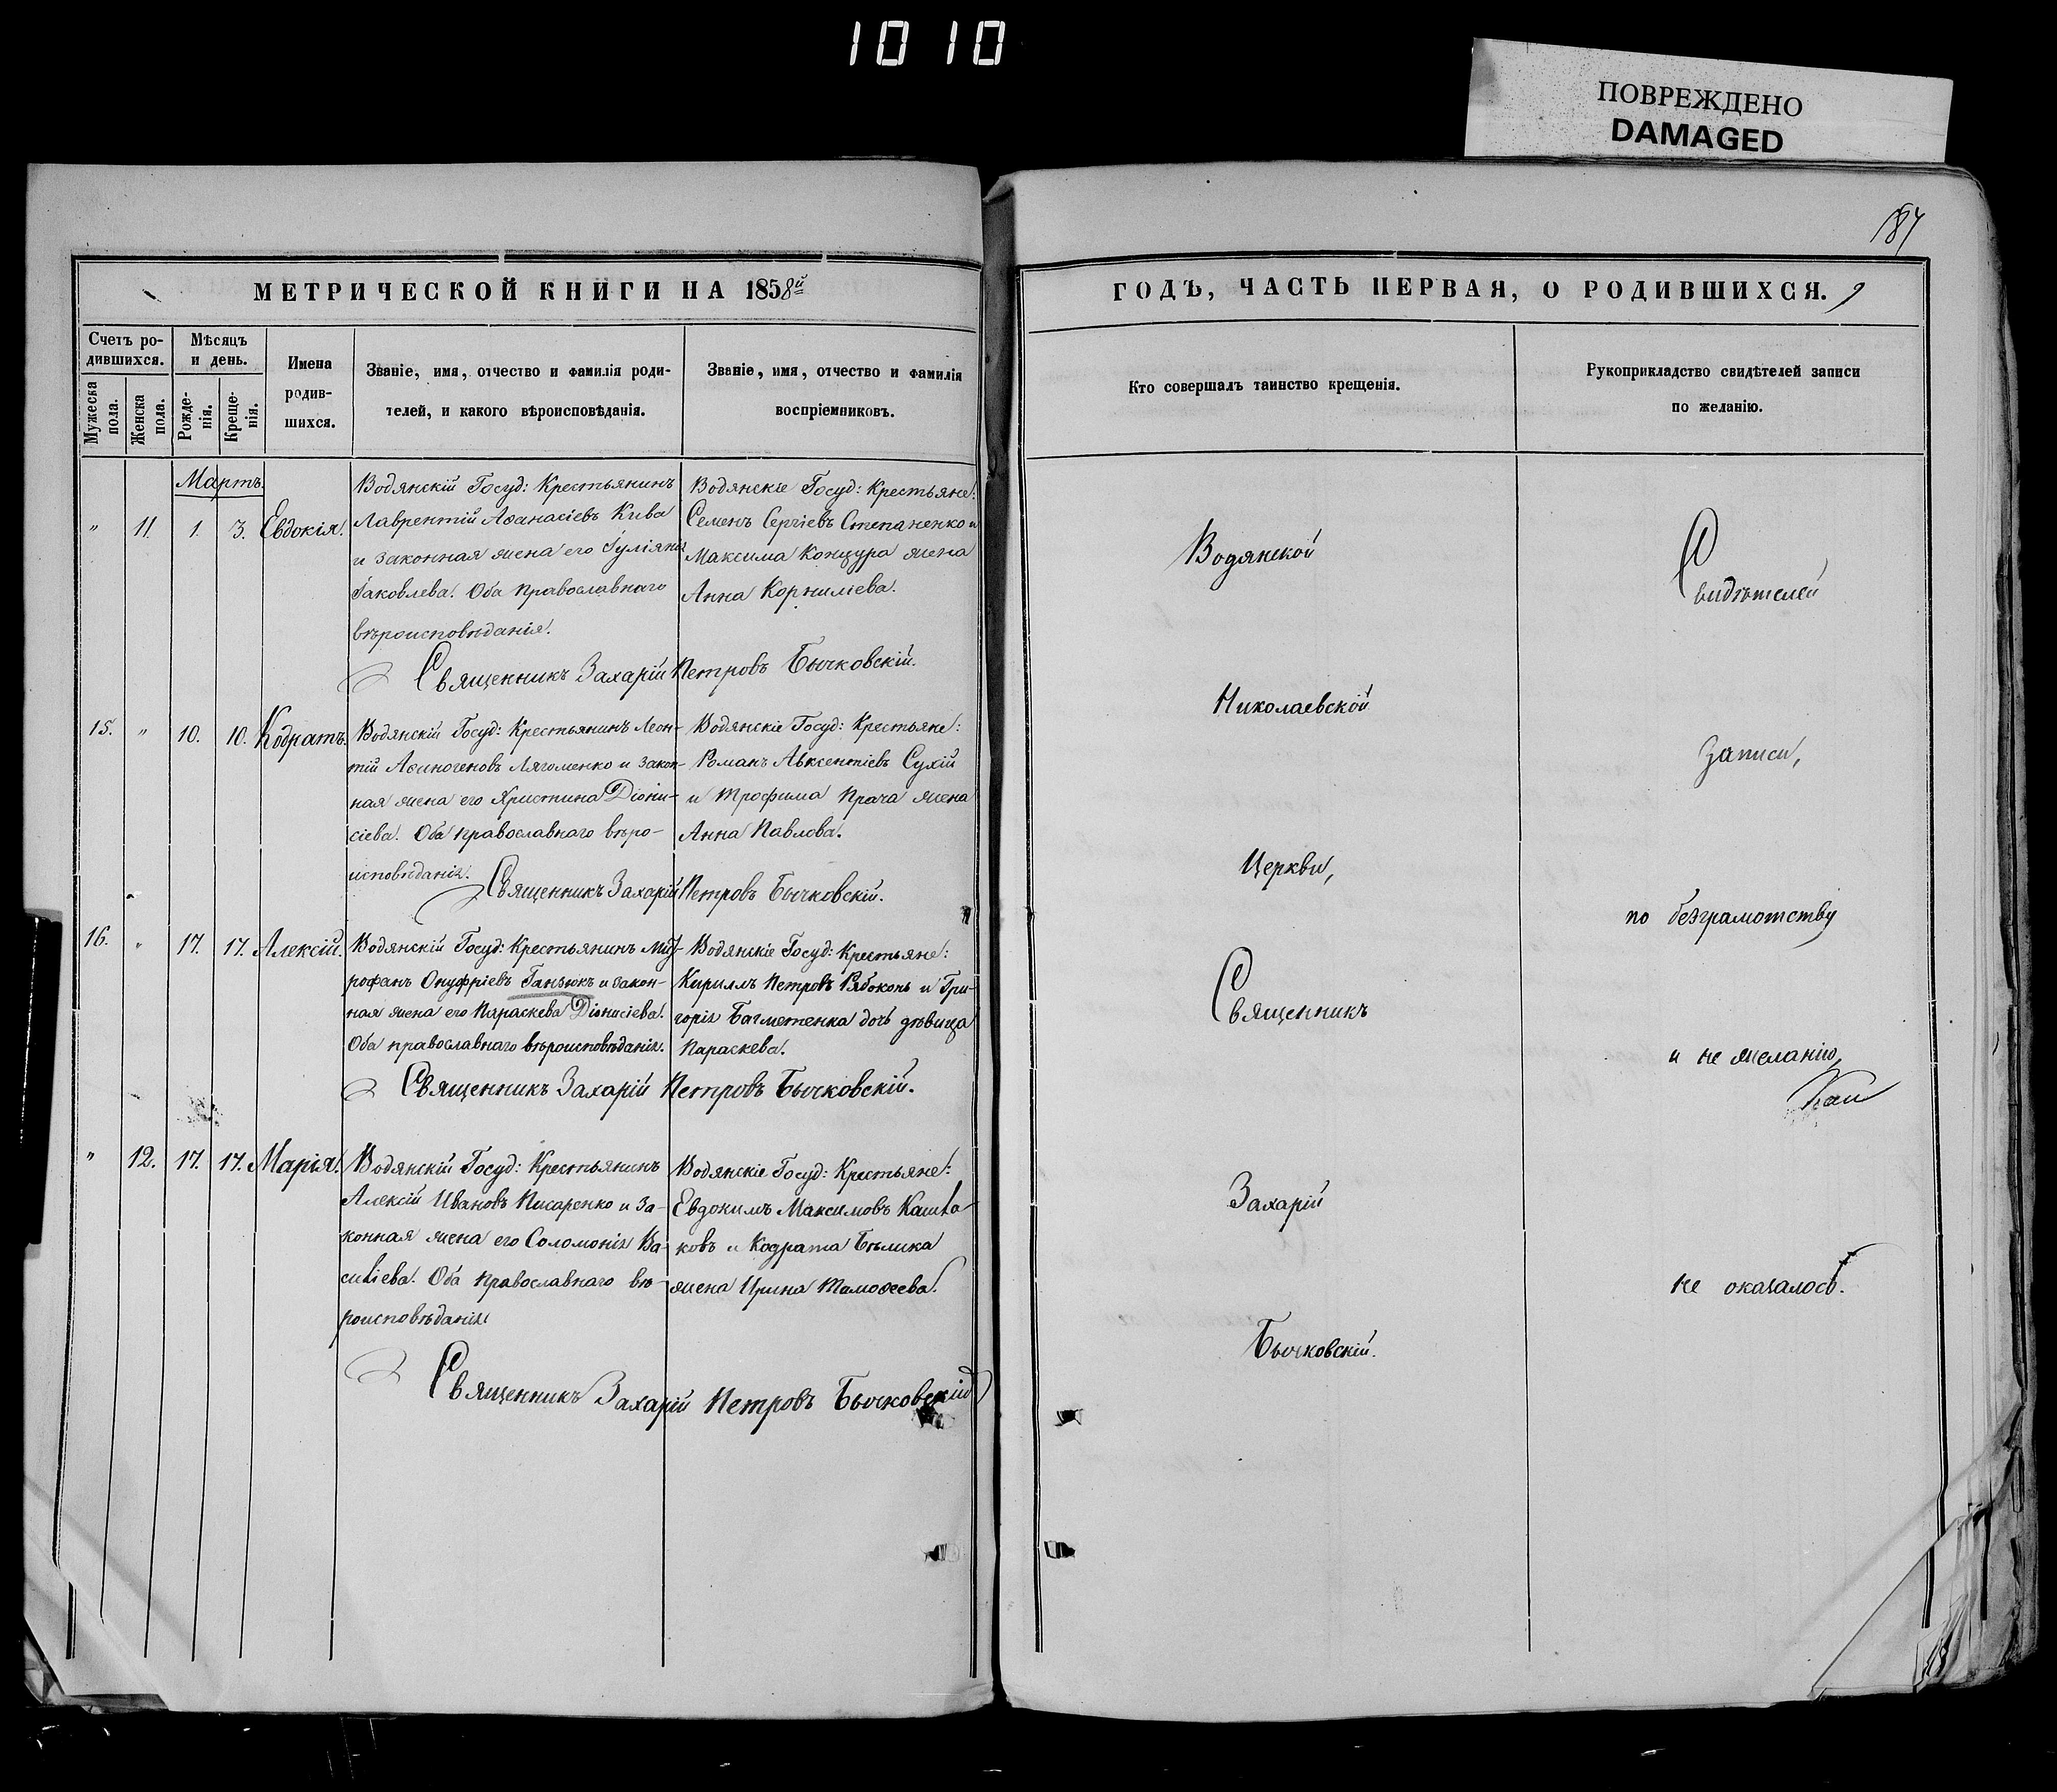 1010
ПОВРЕЖДЕНО
DAMAGED
187
МЕТРИЧЕСКОЙ КНИГИ НА 1858й
ГОДЪ, ЧАСТЬ ПЕРВАЯ, О РОДИВШИХСЯ. 9
Счетъ ро-
дившихся.
Мужеска пола.
Женска пола.
Мѣсяцъ
и день.
Рожде-
нія.
Креще-
нія.
Имена
родив-
шихся.
Званіе, имя, отчество и фамилія роди-
телей, и какого вѣроисповѣданія.
Званіе, имя, отчество и фамилія
воспріемниковъ.
Кто совершалъ таинство крещенія.
Рукоприкладство свидѣтелей записи
по желанію.
Мартъ.
" 11. 1. 3. Евдокія.
Водянскій Госуд: Крестьянинъ
Лаврентій Аѳанасіевъ Кива
и законная жена его Іуліянія
Іаковлева. Оба православнаго
вѣроисповѣданія.
Водянскіе Госуд: Крестьяне:
Семенъ Сергіевъ Степаненко и
Максима Концура жена
Анна Корниліева.
Священникъ Захарій Петровъ Бычковскій.
15. " 10. 10. Кодратъ.
Водянскій Госуд: Крестьянинъ Леон-
тій Аѳиногеновъ Лягоменко и закон-
ная жена его Христина Діони-
сіева. Оба православнаго вѣро-
исповѣданія.
Водянскіе Госуд: Крестьяне:
Романъ Авксентіевъ Сухій
и Трофима Прача жена
Анна Павлова.
Священникъ Захарій Петровъ Бычковскій.
16. " 17. 17. Алексій.
Водянскій Госуд: Крестьянинъ Мит-
рофанъ Онуфріевъ Ганзюкъ и закон-
ная жена его Параскева Діонисіева.
Оба православнаго вѣроисповѣданія.
Водянскіе Госуд: Крестьяне:
Кириллъ Петровъ Рябоконь и Гри-
горія Багметенка дочь дѣвица
Параскева.
Священникъ Захарій Петровъ Бычковскій.
" 12. 17. 17. Марія.
Водянскій Госуд: Крестьянинъ
Алексій Ивановъ Писаренко и за-
конная жена его Соломонія Ва-
силіева. Оба православнаго вѣ-
роисповѣданія
Водянскіе Госуд: Крестьяне:
Евдокимъ Максимовъ Кашла-
ковъ и Кодрата Бѣлика
жена Ирина Тимоѳеева.
Священникъ Захарій Петровъ Бычковскій
Водянской
Николаевской
Церкви,
Священникъ
Захарій
Бычковскій.
Свидѣтелей
записи,
по безграмотству
и не желанію,
не оказалось.